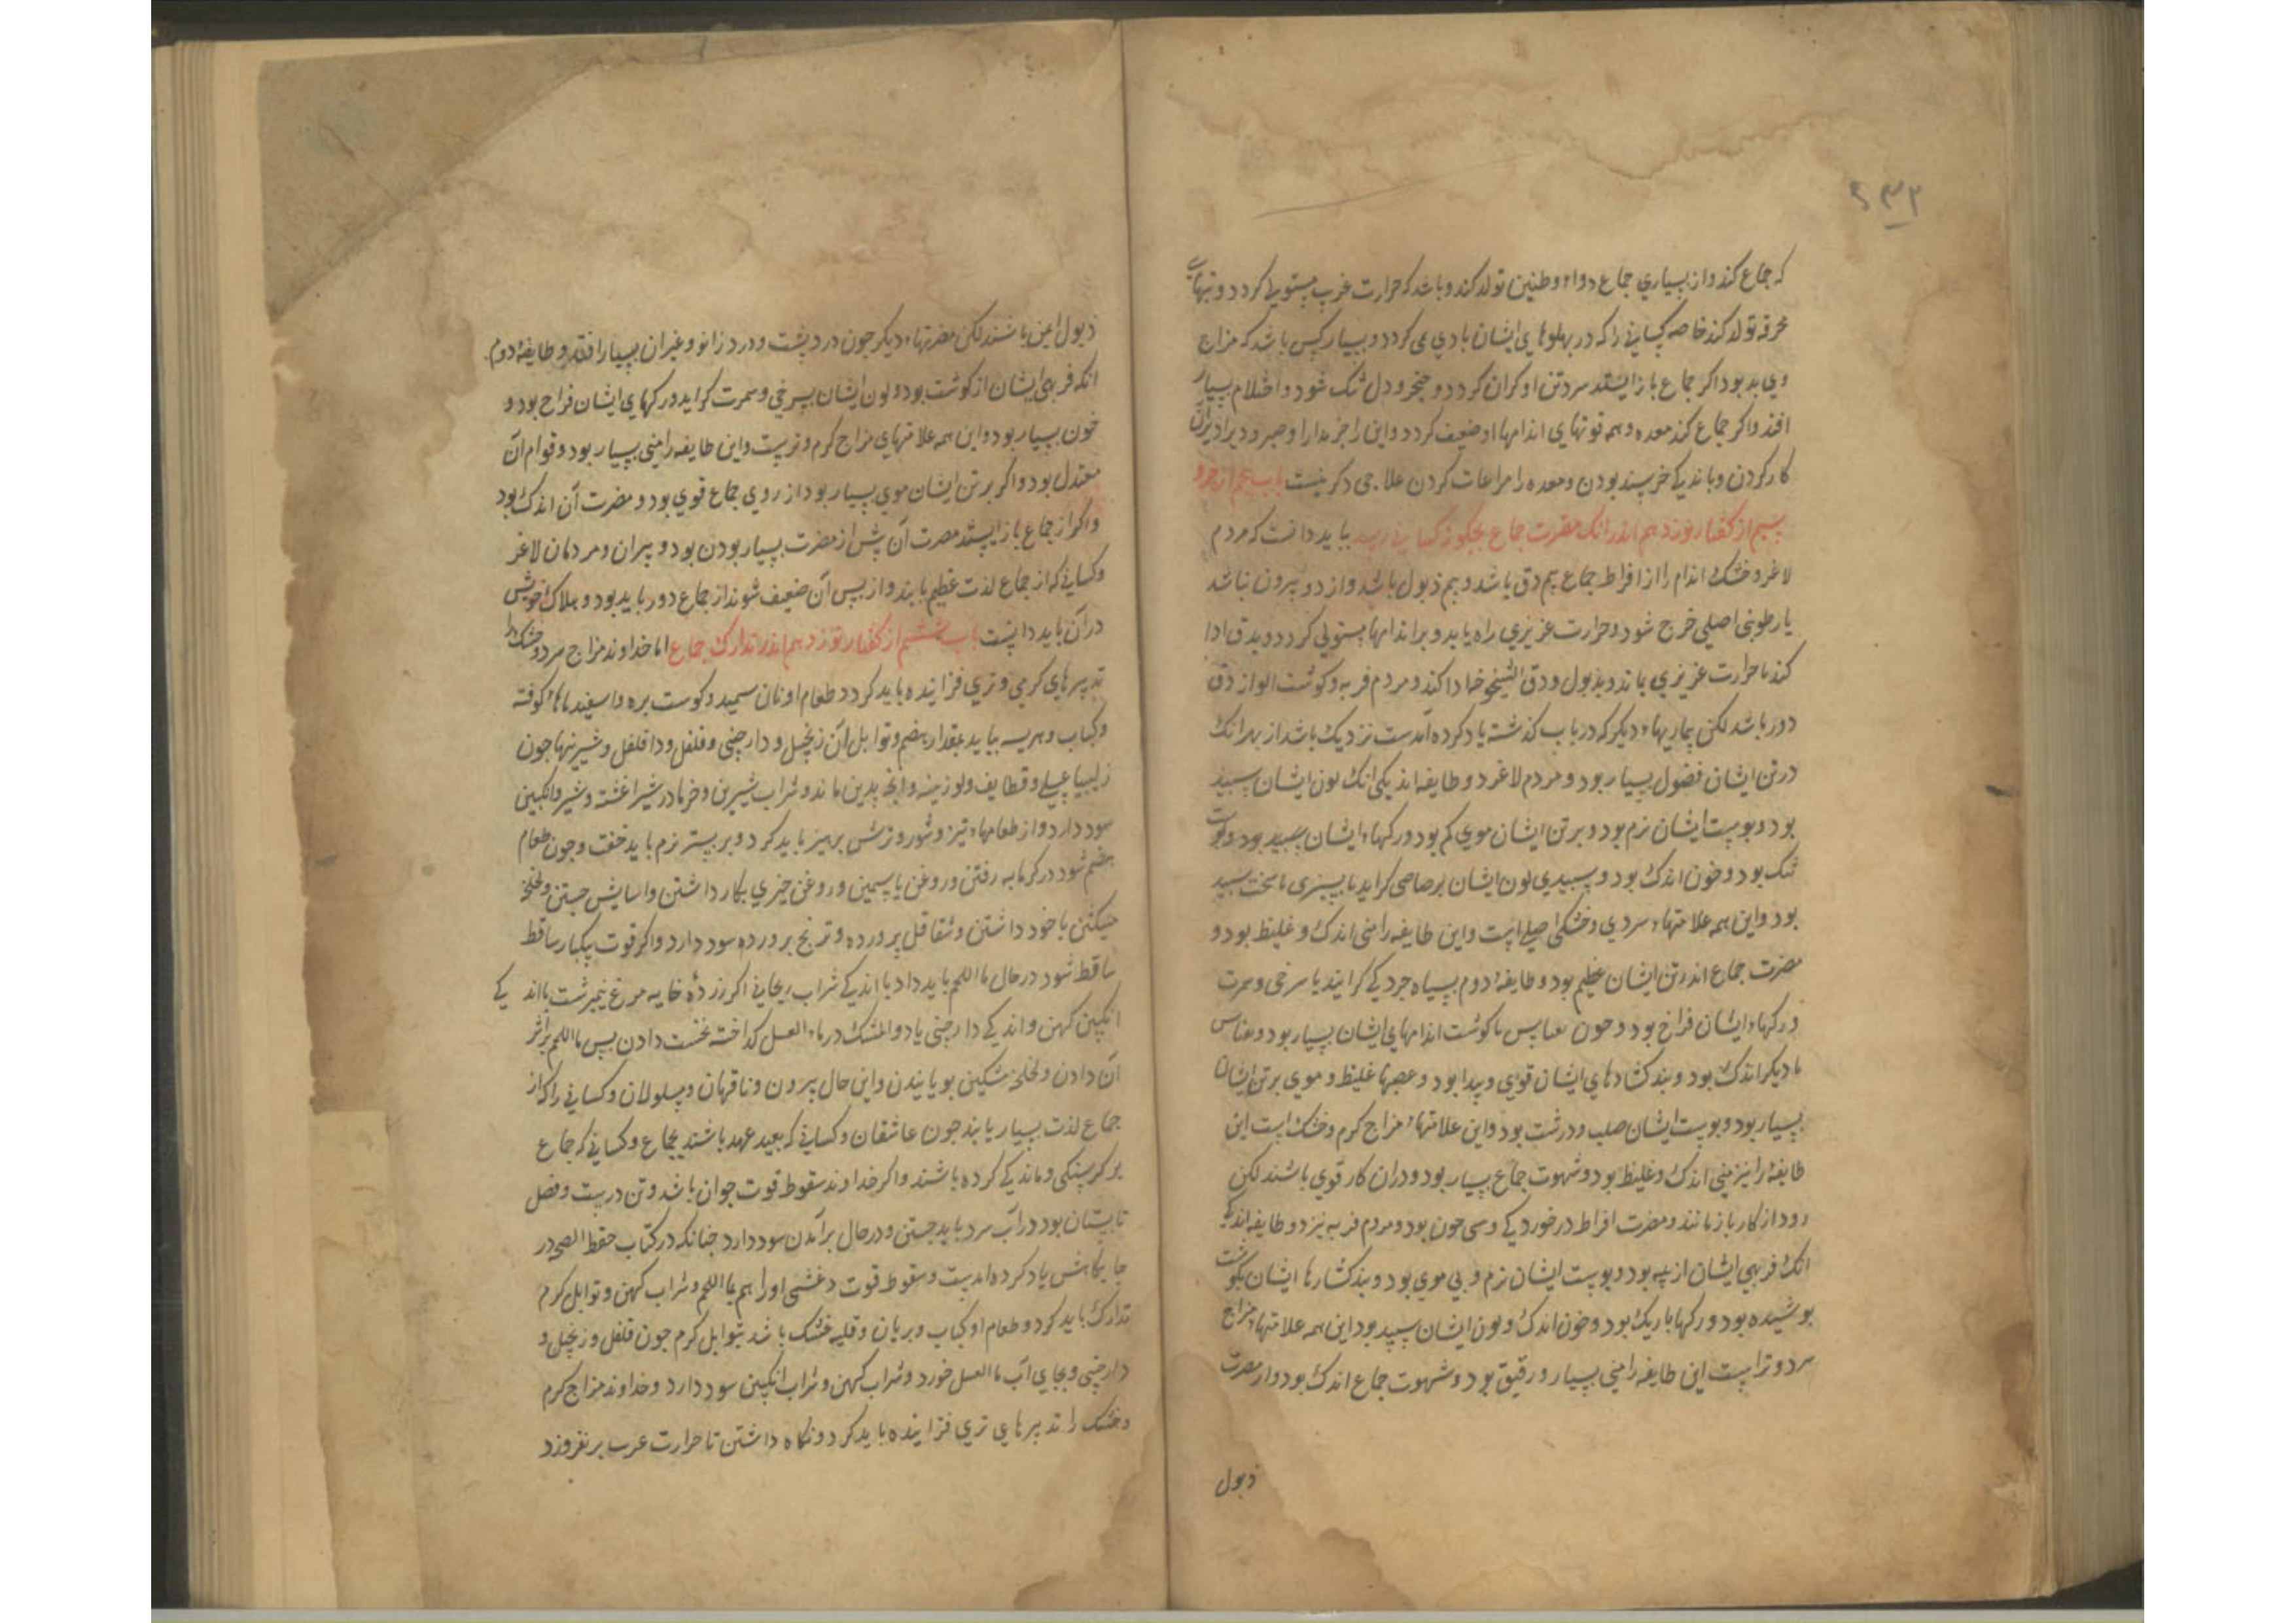 ۲۳۲
که جماع کند و از بسیاری جماع دوار و طنین تولد کند و باشد که حرارت غریب مستولی کردد و تبهای
محرقه تولد کند خاصه کسانی را که در پهلوهای ایشان بادی می کردد و بسیار کس باشد که مزاج
وی بد بود اکر جماع باز ایستد سر و تن او کران کردد و ضجر و دل تنک شود و احتلام بسیار
افتد و اکر جماع کند معده و همه قوتهای اندامها او ضعیف کردد و این را جز مدارا و صبر و دیرادیر آن
کار کردن و باندکی خرسند بودن و معده را مراعات کردن علاجی دکر نیست باب پنجم از جزو
سیم از کفتار نوزدهم اندر انک مضرت جماع بچکونه کسانی رسد بباید دانست که مردم
لاغر و خشک اندام را از افراط جماع بیم دق باشد و بیم ذبول باشد و از دو بیرون نباشد
یا رطوبتی اصلی خرج شود و حرارت غریزی راه یابد و بر اندامها مستولی کردد و بدق ادا
کند یا حرارت غریزی بماند و بذبول و دق الشیخوخه ادا کند و مردم فربه و کوشت الو از دق
دور باشد لکن بیماریهاء دیکر که در باب کذشته یاد کرده آمدست نزدیک باشد از بهر انک
در تن ایشان فضول بسیار بود و مردم لاغر دو طایفه اند یکی انک لون ایشان سپید
بود و پوست ایشان نرم بود و بر تن ایشان موی کم بود و رکهاء ایشان سپید بود و کوشت
تنک بود و خون اندک بود و سپیدی لون ایشان برصاصی کراید یا بسبزی یا سخت سپید
بود و این همه علامتهاء سردی و خشکی اصلی است و این طایفه را منی اندک و غلیظ بود و
مضرت جماع اندر تن ایشان عظیم بود و طایفهٔ دوم بسیاه جردکی کرایند یا سرخی و سمرت
و رکهاء ایشان فراخ بود و خون بقیاس با کوشت اندامهای ایشان بسیار بود و بقیاس
با دیکر اندک بود و بندکشادهای ایشان قوی و پیدا بود و عصبها غلیظ و موی بر تن ایشان
بسیار بود و پوست ایشان صلب و درشت بود و این علامتهاء مزاج کرم و خشک است این
طایفه را نیز منی اندک و غلیظ بود و شهوت جماع بسیار بود و دران کار قوی باشند لکن
زود از کار باز مانند و مضرت افراط در خوردکی و سی جون بود و مردم فربه نیز دو طایفه اند یکی
انک فربهی ایشان از پیه بود و پوست ایشان نرم و بی موی بود و بندکشارها ایشان بکوشت
پوشیده بود و رکها باریک بود و خون اندک و لون ایشان سپید بود این همه علامتهاء مزاج
سرد و تر است این طایفه را منی بسیار و رقیق بود و شهوت جماع اندک بود و از مضرت
ذبول
ذبول ایمن باشند لکن مضرتهاء دیکر جون درد پشت و درد زانو و غیر ان بسیار افتد و طایفهٔ دوم
انکه فربهی ایشان از کوشت بود و لون ایشان بسرخی و سمرت کراید و رکهای ایشان فراخ بود و
خون بسیار بود و این همه علامتهای مزاج کرم و تر است و این طایفه را منی بسیار بود و قوام آن
معتدل بود و اکر بر تن ایشان موی بسیار بود از روی جماع قوی بود و مضرت آن اندک بود
و اکر از جماع باز ایستد مضرت آن بیش از مضرت بسیار بودن بود و پیران و مردمان لاغر
و کسانی که از جماع لذت عظیم یابند و از پس آن ضعیف شوند از جماع دور باید بود و هلاک خویش
در آن باید دانست باب ششم از کفتار نوزدهم اندر تدارک جماع اما خداوند مزاج سرد و خشک را
تدبیرهای کرمی و تری فزاینده باید کرد و طعام او نان سمید و کوشت بره و اسفیدباها کوفته
و کباب و هریسه بباید بمقدار هضم و توابل آن زنجبیل و دارچینی و فلفل و دافلفل و شیرینیها جون
زلیبیا عسلی و قطایف و لوزینه و انچه بدین ماند و شراب شیرین و خرما در شیر اغشته و شیر و انکبین
سود دارد و از طعامهاء تیز و شور و ترش پرهیز باید کرد و بر بستر نرم باید خفت و جون طعام
هضم شود در کرمابه رفتن و روغن یاسمین و روغن خیری بکار داشتن و اسایش جستن و لخلخهٔ
مشکین با خود داشتن و شقاقل پرورده و ترنج پرورده سود دارد و اکر قوت یکبار ساقط
ساقط شود در حال ماء اللحم باید داد با اندکی شراب ریحانی اکر زردهٔ خایه مرغ نیمبرشت با اند کی
انکبین کهن و اندکی دارچینی یا دواء المشک در ماء العسل کداخته نخست دادن پس ماء اللحم بر اثر
آن دادن و لخلخهٔ مشکین بویانیدن و این حال پیرون و ناقهان و مسلولان و کسانی را که از
جماع لذت بسیار یابند جون عاشقان و کسانی که بعید عهد باشند بجماع و کسانی که جماع
بر کرسنکی و ماندکی کرده باشند و اکر خداوند سقوط قوت جوان باشد و تن درست و فصل
تابستان بود در آب سرد باید جستن و در حال بر آمدن سود دارد جنانکه در کتاب حفظ الصحه در
جایکاهش یاد کرده امدست و سقوط قوت و غشی او را هم بماء اللحم و شراب کهن و توابل کرم
تدارک باید کرد و طعام او کباب و بریان و قلیه خشک باشد بتوابل کرم جون فلفل و زنجبیل و
دارچینی و بجای آب ماء العسل خورد و شراب کهن و شراب انکبین سود دارد و خداوند مزاج کرم
و خشک را تدبیرهای تری فزاینده باید کرد و نکاه داشتن تا حرارت غریب بر نفروزد